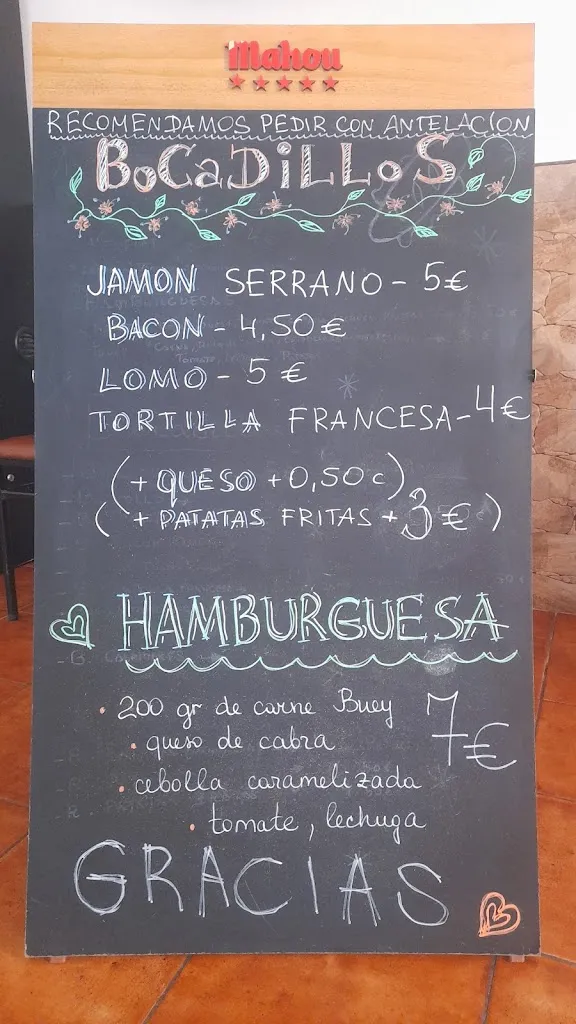 Mahou
RECOMENDAMOS PEDIR CON ANTELACION
BOCADILLOS
JAMON SERRANO - 5€
BACON - 4,50€
LOMO - 5€
TORTILLA FRANCESA - 4€
(+ QUESO + 0,50c)
(+ PATATAS FRITAS + 3€)
HAMBURGUESA
• 200 gr de carne Buey
7€
• queso de cabra
• cebolla caramelizada
• tomate, lechuga
GRACIAS